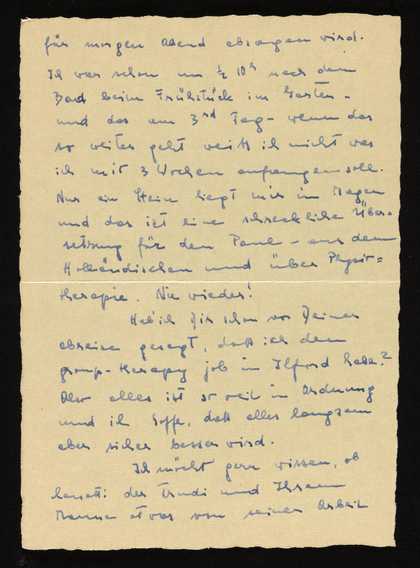 für morgen Abend absagen wird.
Ich war schon um ½ 10h nach dem
Bad beim Frühstück im Garten -
und das am 3rd Tag - wenn das
so weiter geht weiß ich nicht was
ich mit 3 Wochen anfangen soll.
Nur ein Stein liegt mir im Magen
und das ist eine schreckliche Über-
setzung für den Paul - aus dem
Holländischen und über Physio-
therapie. Nie wieder!
Hab' ich Dir schon vor Deiner
abreise gesagt, daß ich den
group-therapy job in Ilford habe?
Also alles ist so weit in Ordnung
und ich hoffe, daß alles langsam
aber sicher besser wird.
Ich möcht gern wissen, ob
der Trudi und Ihrem
Manne etwas von seiner Arbeit